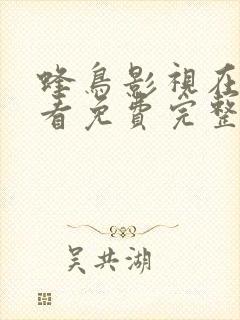 蜂鳥影視在
看免費完整
吴共湖